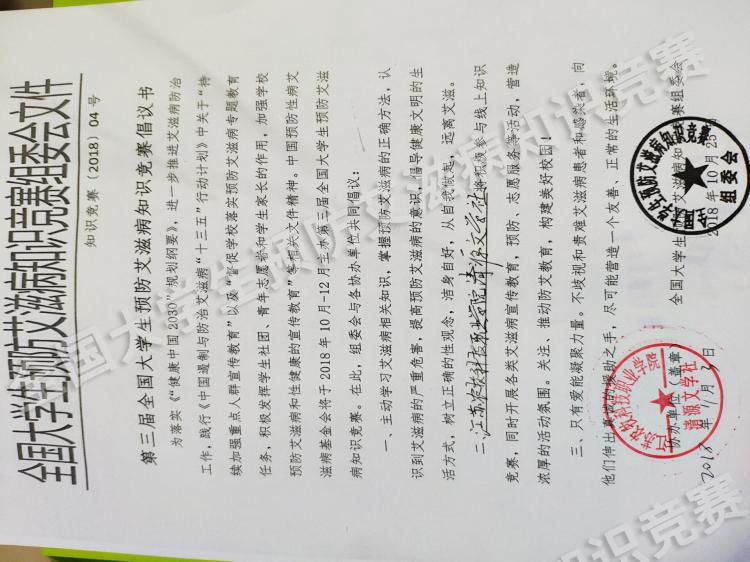 全国大学生预防艾滋病知识竞赛组委会文件
知识竞赛〔2018〕04 号
第三届全国大学生预防艾滋病知识竞赛倡议书
为落实《“健康中国 2030”规划纲要》，进一步推进艾滋病防治
工作，践行《中国遏制与防治艾滋病“十三五”行动计划》中关于“持
续加强重点人群宣传教育”以及“督促学校落实预防艾滋病专题教育
任务，积极发挥学生社团、青年志愿者和学生家长的作用，加强学校
预防艾滋病和性健康的宣传教育”等相关文件精神。中国预防性病艾
滋病基金会将于 2018 年 10 月-12 月主办第三届全国大学生预防艾滋
病知识竞赛。在此，组委会与各协办单位共同倡议：
一、主动学习艾滋病相关知识，掌握预防艾滋病的正确方法，认
识到艾滋病的严重危害，提高预防艾滋病的意识，倡导健康文明的生
活方式，树立正确的性观念，洁身自好，从自我做起，远离艾滋。
二、江苏农牧科技职业学院清源文学社将积极参与线上知识
竞赛，同时开展各类艾滋病宣传教育，预防、志愿服务等活动，营造
浓厚的活动氛围。关注、推动防艾教育，构建美好校园！
三、只有爱能凝聚力量。不歧视和责难艾滋病患者和感染者，向
他们伸出真诚的援助之手，尽可能营造一个友善、正常的生活环境。
协办单位（盖章）
2018 年 11 月 3 日
江苏农牧科技职业学院
清源文学社
全国大学生预防艾滋病知识竞赛组委会
2018 年 10 月 25 日
全国大学生预防艾滋病知识竞赛
组委会
全国大学生预防艾滋病知识竞赛